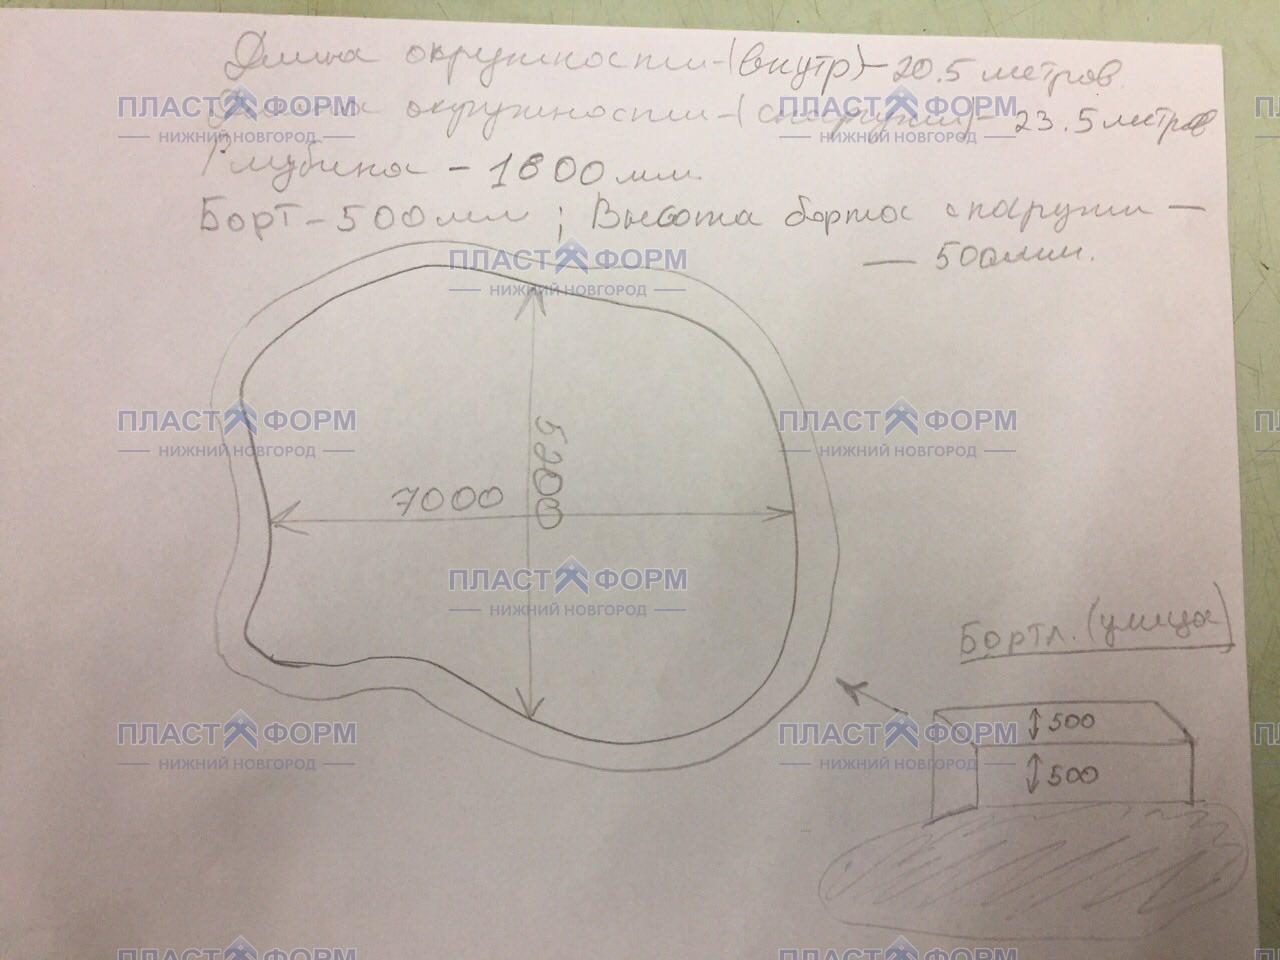 Длина окружности-(внутр)-20.5 метров.
Длина окружности-(снаружи)- 23.5метров
Глубина - 1600мм.
Борт-500мм ; Высота борта снаружи —
— 500мм.
5200
7000
Бортл. (улица)
500
500
ПЛАСТ ФОРМ
НИЖНИЙ НОВГОРОД
ПЛАСТ ФОРМ
НИЖНИЙ НОВГОРОД
ПЛАСТ ФОРМ
НИЖНИЙ НОВГОРОД
ПЛАСТ ФОРМ
НИЖНИЙ НОВГОРОД
ПЛАСТ ФОРМ
НИЖНИЙ НОВГОРОД
ПЛАСТ ФОРМ
НИЖНИЙ НОВГОРОД
ПЛАСТ ФОРМ
НИЖНИЙ НОВГОРОД
ПЛАСТ ФОРМ
НИЖНИЙ НОВГОРОД
ПЛАСТ ФОРМ
ПЛАСТ ФОРМ